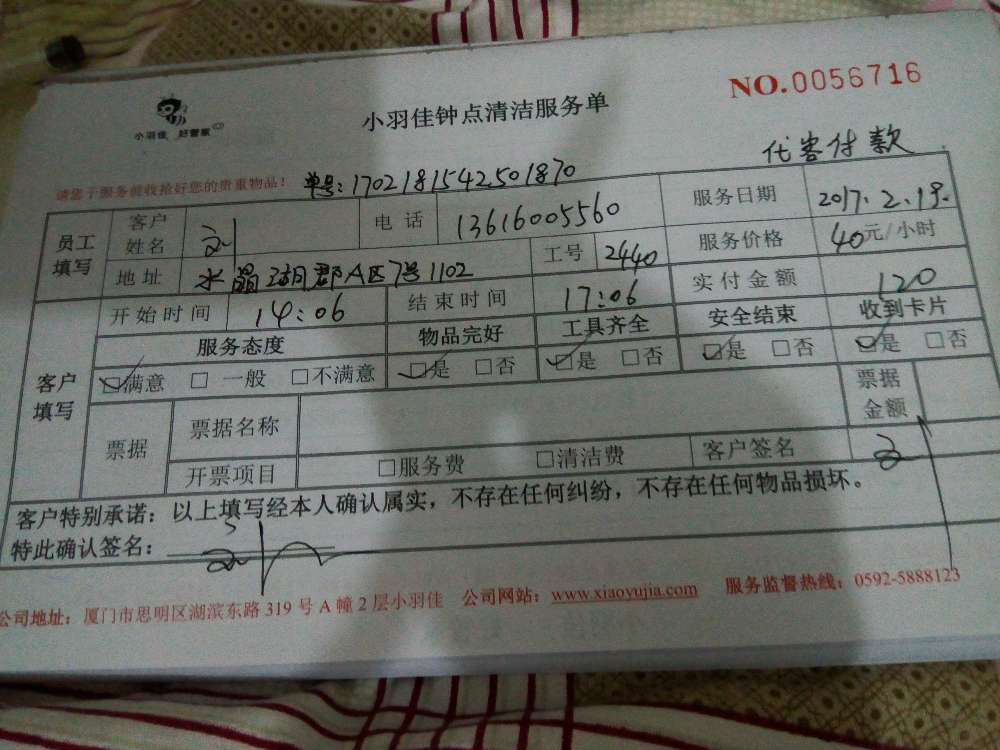 NO.0056716
小羽佳 好管家
小羽佳钟点清洁服务单
代客付款
请您于服务前收拾好您的贵重物品！ 单号：1702181542501870
员工填写 客户姓名 刘 电话 13616005560 服务日期 2017.2.19.
地址 水晶湖郡A区7号1102 工号 2440 服务价格 40元/小时
客户填写 开始时间 14:06 结束时间 17:06 实付金额 120
服务态度 物品完好 工具齐全 安全结束 收到卡片
☑满意 □一般 □不满意 ☑是 □否 ☑是 □否 ☑是 □否 ☑是 □否
票据 票据名称 票据金额
开票项目 □服务费 □清洁费 客户签名
客户特别承诺：以上填写经本人确认属实，不存在任何纠纷，不存在任何物品损坏。
特此确认签名：
公司地址：厦门市思明区湖滨东路319号A幢2层小羽佳 公司网站：www.xiaoyujia.com 服务监督热线：0592-5888123